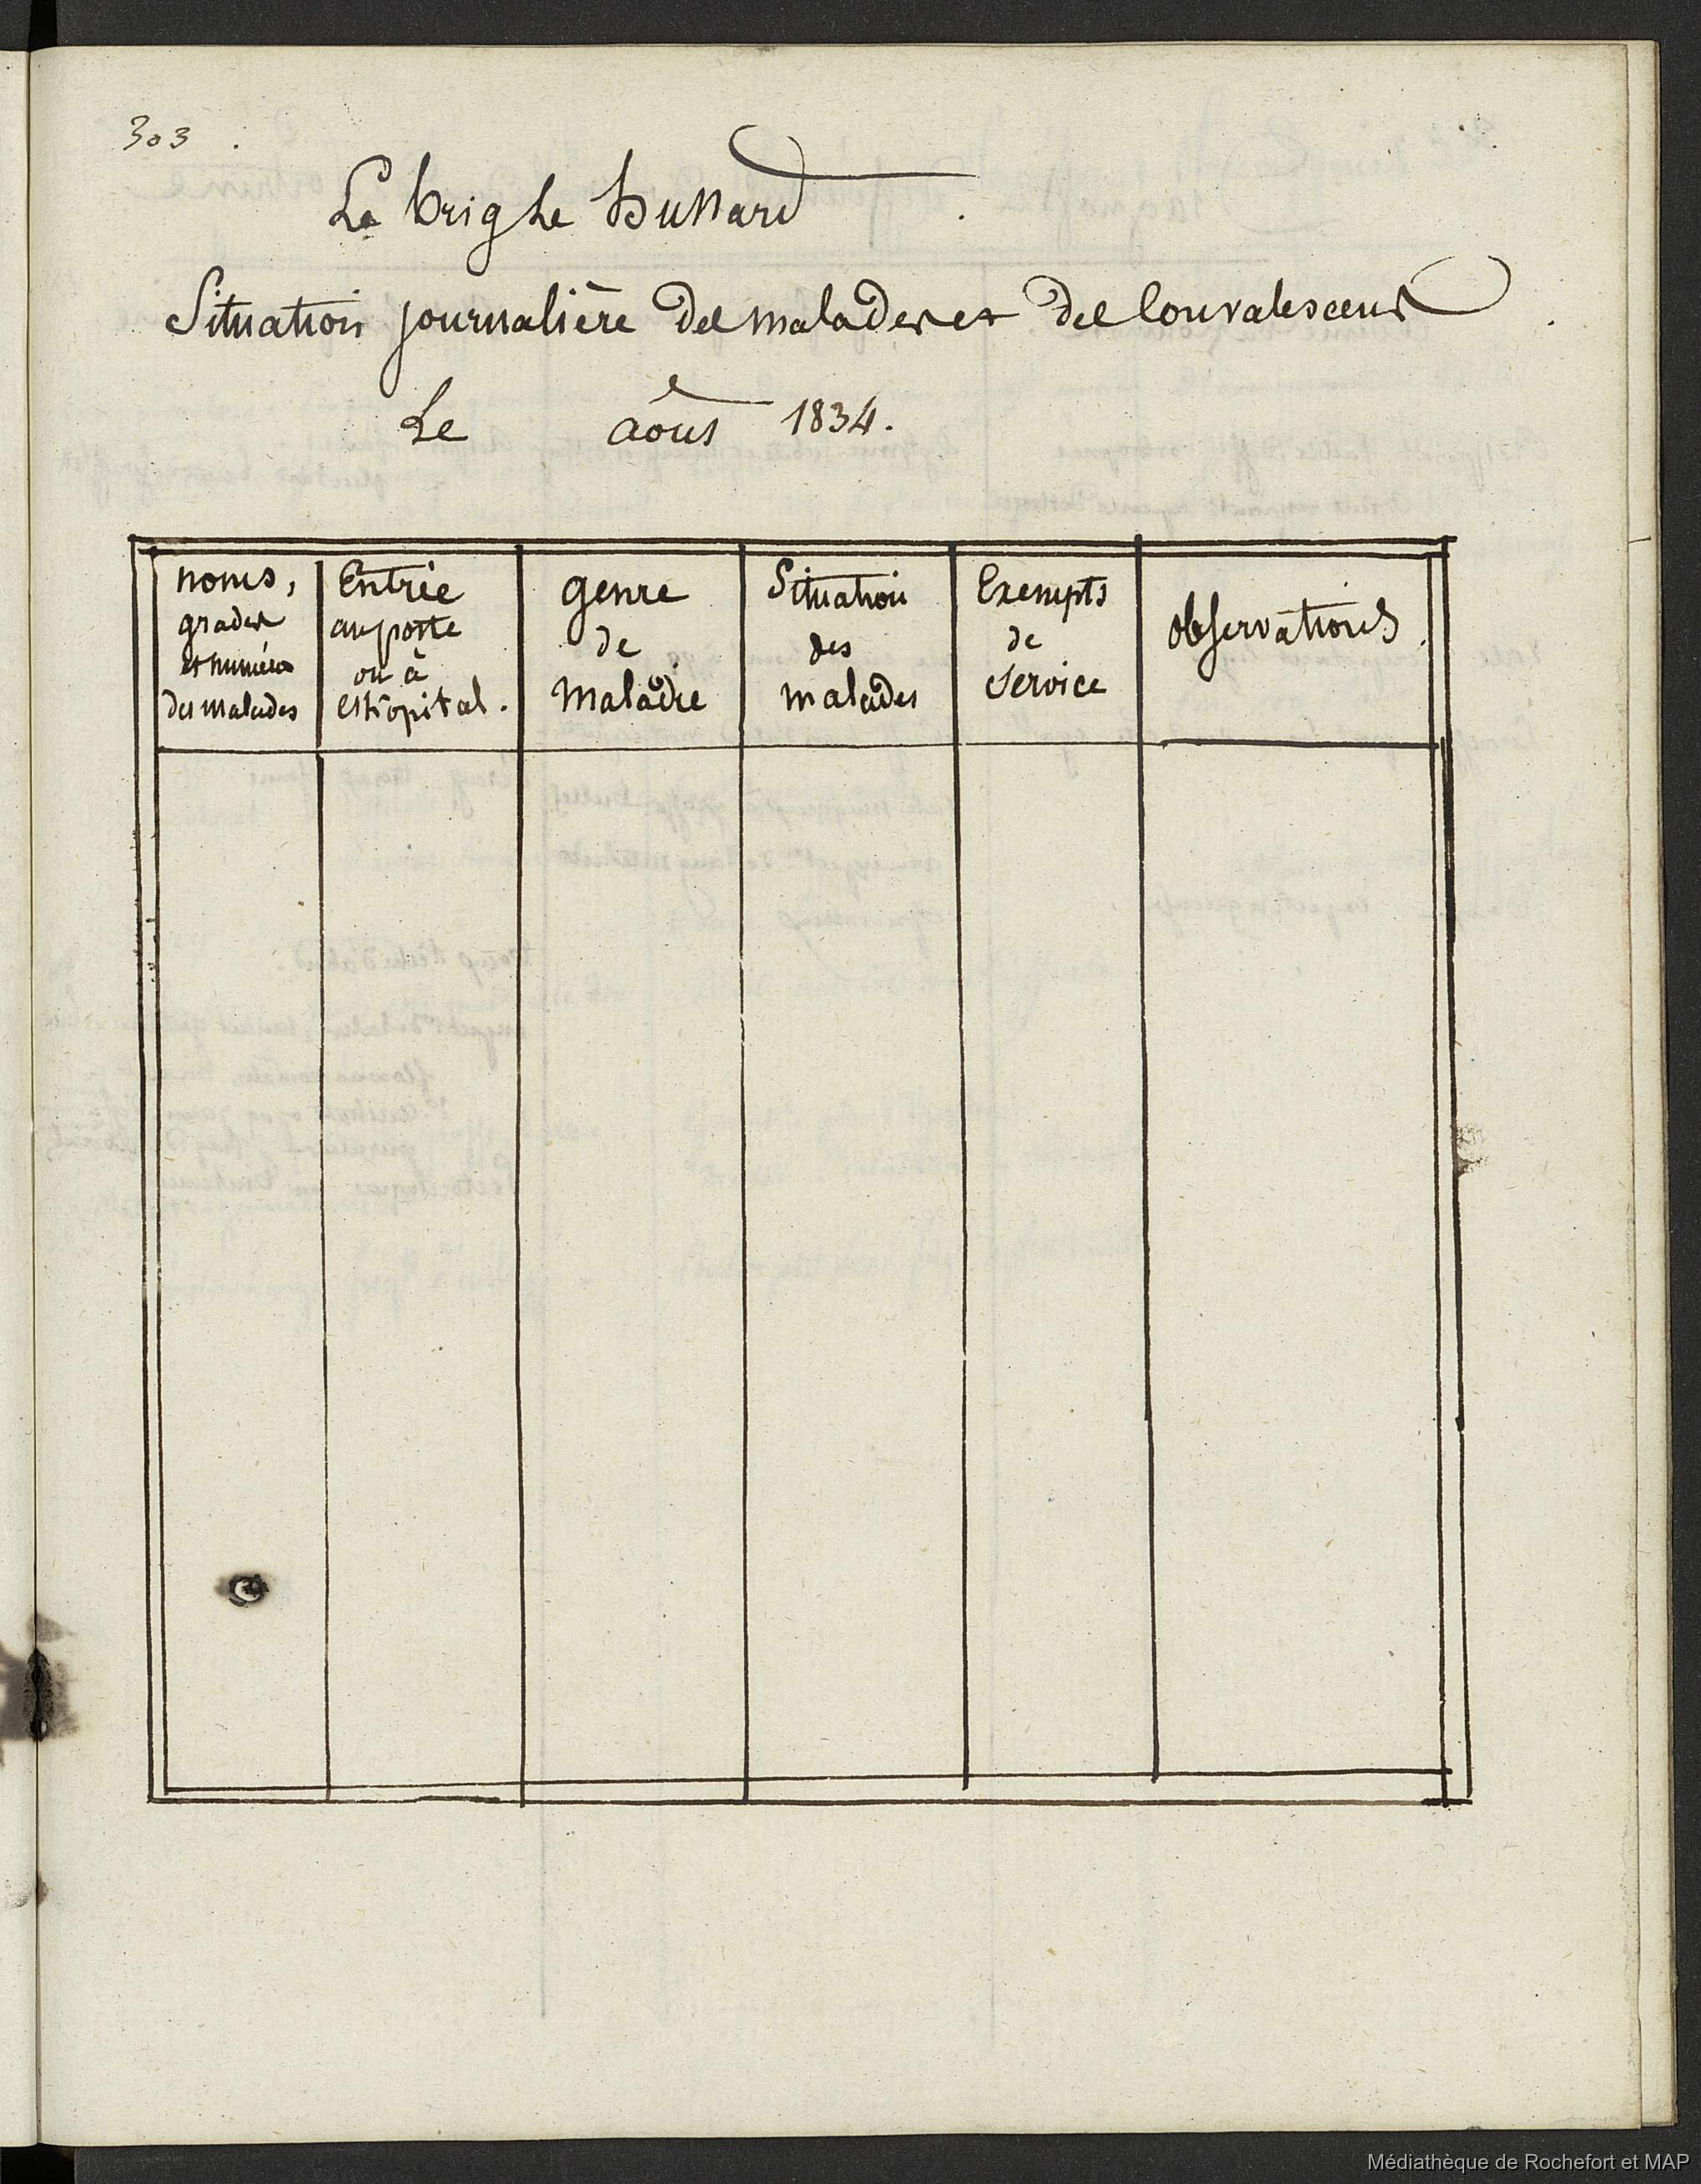 303.
Le brig Le hussard.
Situation journalière des malades et des Convalescens.
Le août 1834.
noms,
grades
et numéros
des malades
Entrée
au poste
ou à
l'hôpital.
genre
de
maladie
Situation
des
malades
Exempts
de
service
observations.
Médiathèque de Rochefort et MAP